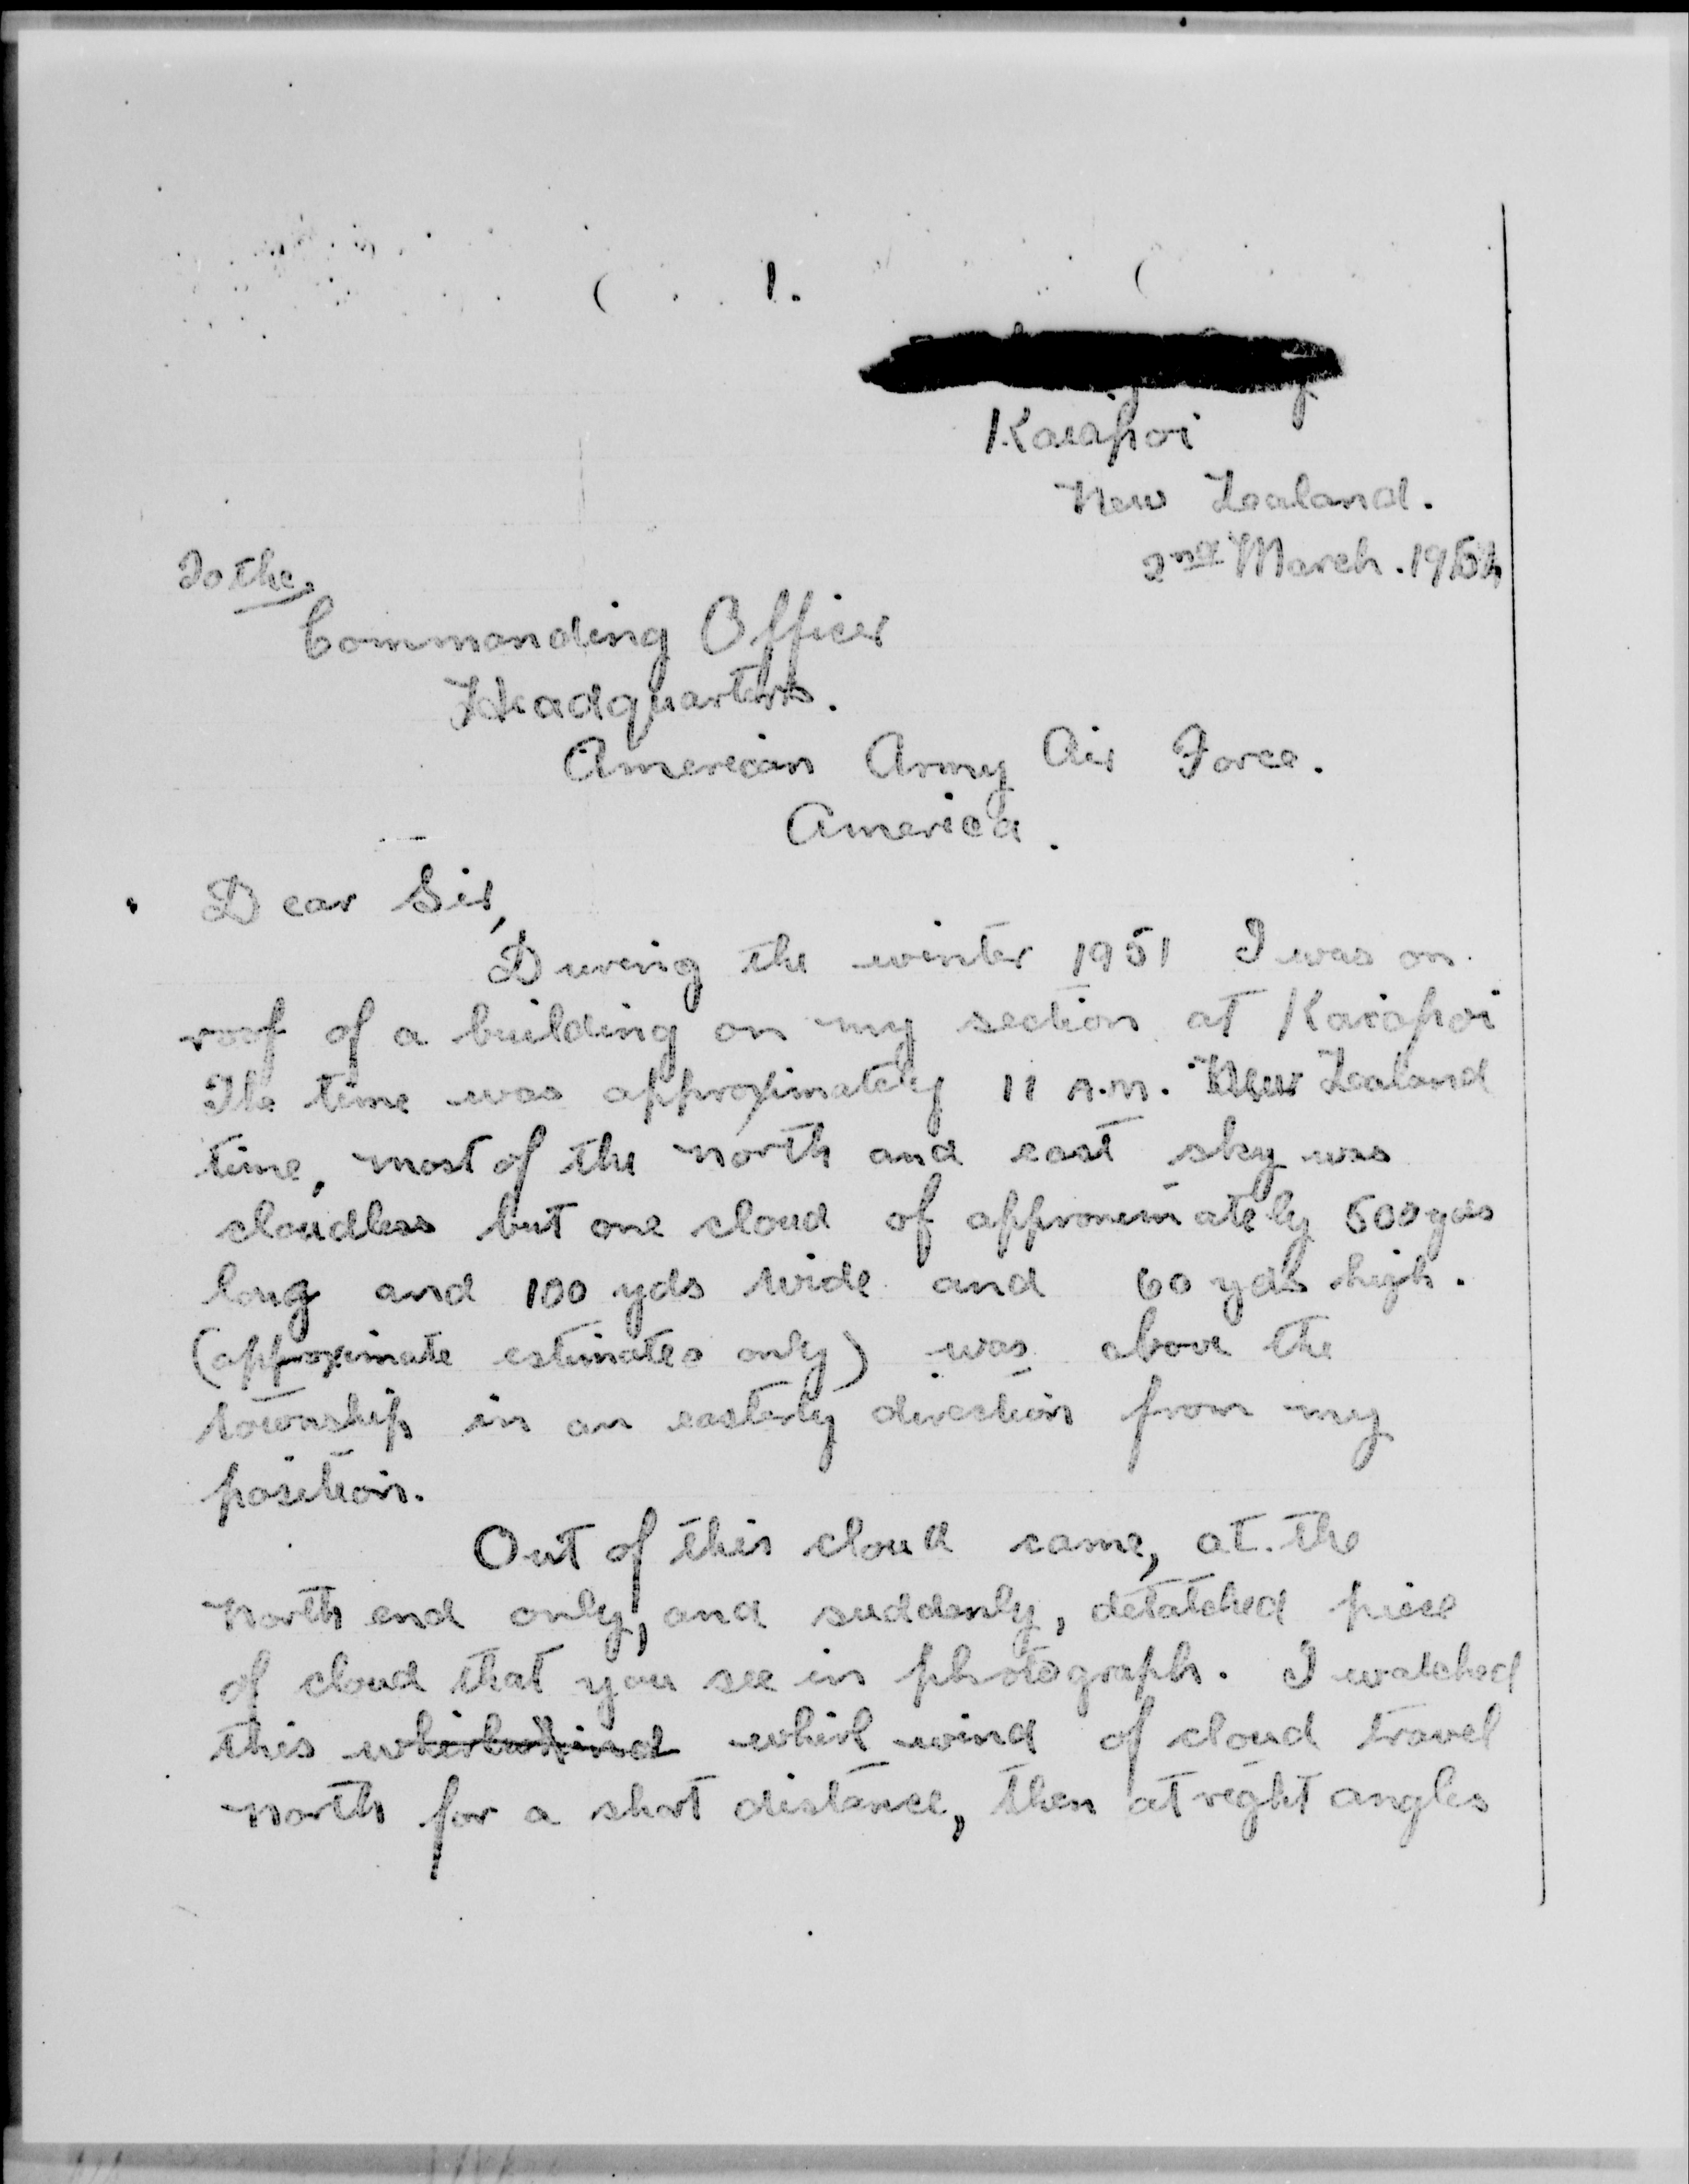 1.
Kaiapoi
New Zealand.
2nd March. 1954
To the
Commanding Officer
Headquarters.
American Army Air Force.
America.
Dear Sir,
During the winter 1951 I was on
roof of a building on my section at Kaiapoi
The time was approximately 11 A.M. New Zealand
time, most of the north and east sky was
cloudless but one cloud of approximately 500 yds
long and 100 yds wide and 60 yds high.
(approximate estimates only) was above the
township in an easterly direction from my
position.
Out of this cloud came, at the
North end only, and suddenly, detatched piece
of cloud that you see in photograph. I watched
this whirlwind whirl wind of cloud travel
North for a short distance, then at right angles